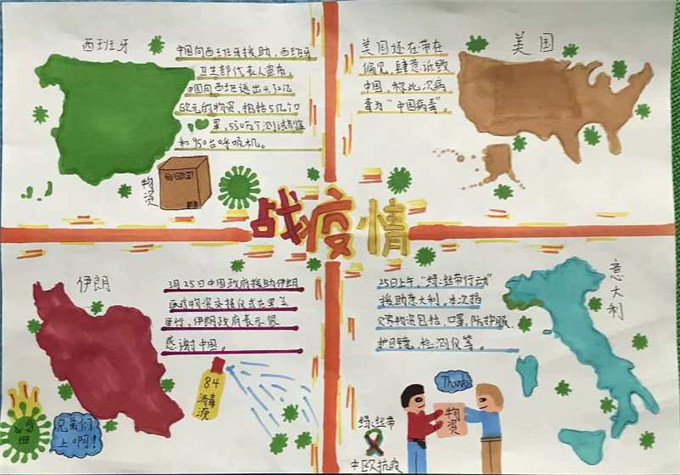 西班牙
中国向西班牙援助，西班牙
卫生部代表人宣布，
中国向西班送出4.32亿
欧元的物资，包括5亿个口
罩，550万个测试剂盒
和950台呼吸机。
物资
美国
美国还在带在
偏见，肆意诋毁
中国，称此次病
毒为“中国病毒”。
战疫情
伊朗
3月25日中国政府援助伊朗
政府表示很
感谢中国。
84
消毒液
兄弟们
上啊！
意大利
25日上午，“绿丝带行动”
援助意大利，本次捐
物资包括，口罩，防护服，
护目镜，检测仪等。
Thanks!
物资
绿丝带
中欧抗疫